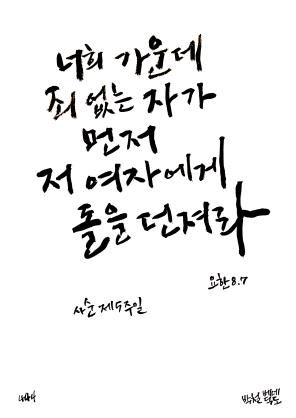 너희 가운데
죄 없는 자가
먼저
저 여자에게
돌을 던져라
요한 8.7
사순 제5주일